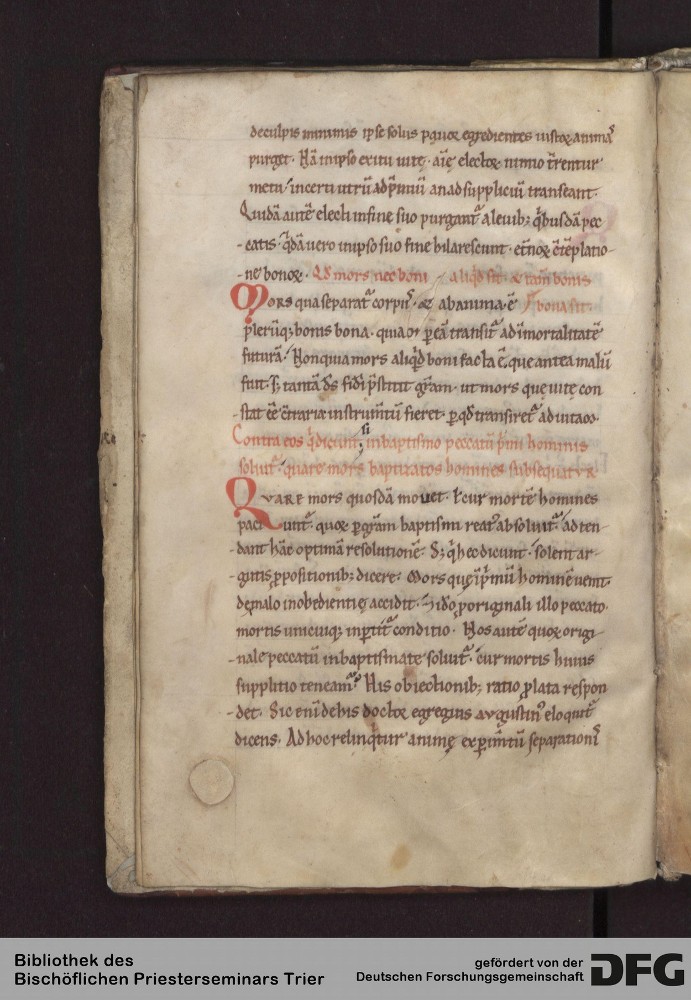 deculpis minimis ipse solus pauor egredientes iustoꝝ animaſ
purget. Nā inipso exitu uitę. aīę electoꝝ nimio t̄rentur
metu. incerti utrū adp̄miū anadsuppliciū transeant.
Quidā autē electi infine suo purgant᷑ aleuib; q̄busdā pec
-catis. q̄dā uero inipso suo fine hilarescunt. et̄noꝝ c̄tēplatio-
-ne bonoꝝ. Qd̄ mors nec boni aliqd̄ sit. & tam̄ bonis
Mors qua separat᷑ corpus & abanima. ē bona sit.
plerūq; bonis bona. quia per eā transit᷑ ad īmortalitatē
futurā. Non quia mors aliqd̄ boni facta ē. que antea malū
fuit. s; tantā d̄s fidei p̄stitit gr̄am. ut mors que uitę con
-stat eē c̄trariā instrum̄tū fieret. p qd̄ transiret᷑ ad uitā.
Contra eos q̄ dicunt; si inbaptismo peccatū primi hominis
soluit᷑. quare mors baptizatos homines subsequatur
Quare mors quosdā mouet. ł cur mortē homines
paciuntur. quoꝝ p gr̄am baptismi reatꝰ absoluit᷑. ad ten-
-dant hāc optimā resolutionē. S; q̄ hęc dicunt. solent ar-
-gutis ppositionib; dicere. Mors que ī p̄mū hominē uenit.
de malo inobedientię accidit. & ido p originali illo peccato
mortis unicuiq; inptit᷑ conditio. Nos autē quoꝝ origi-
-nale peccatū in baptismate soluit᷑. cur mortis huius
supplitio teneam᷑? His obiectionib; ratio plata respon
-det. Sic enī de his doctor egregius augustinꝰ eloquit᷑
dicens. Ad hoc relinqt̄ur animę experim̄tū separationis
Bibliothek des
Bischöflichen Priesterseminars Trier
gefördert von der
Deutschen Forschungsgemeinschaft
DFG